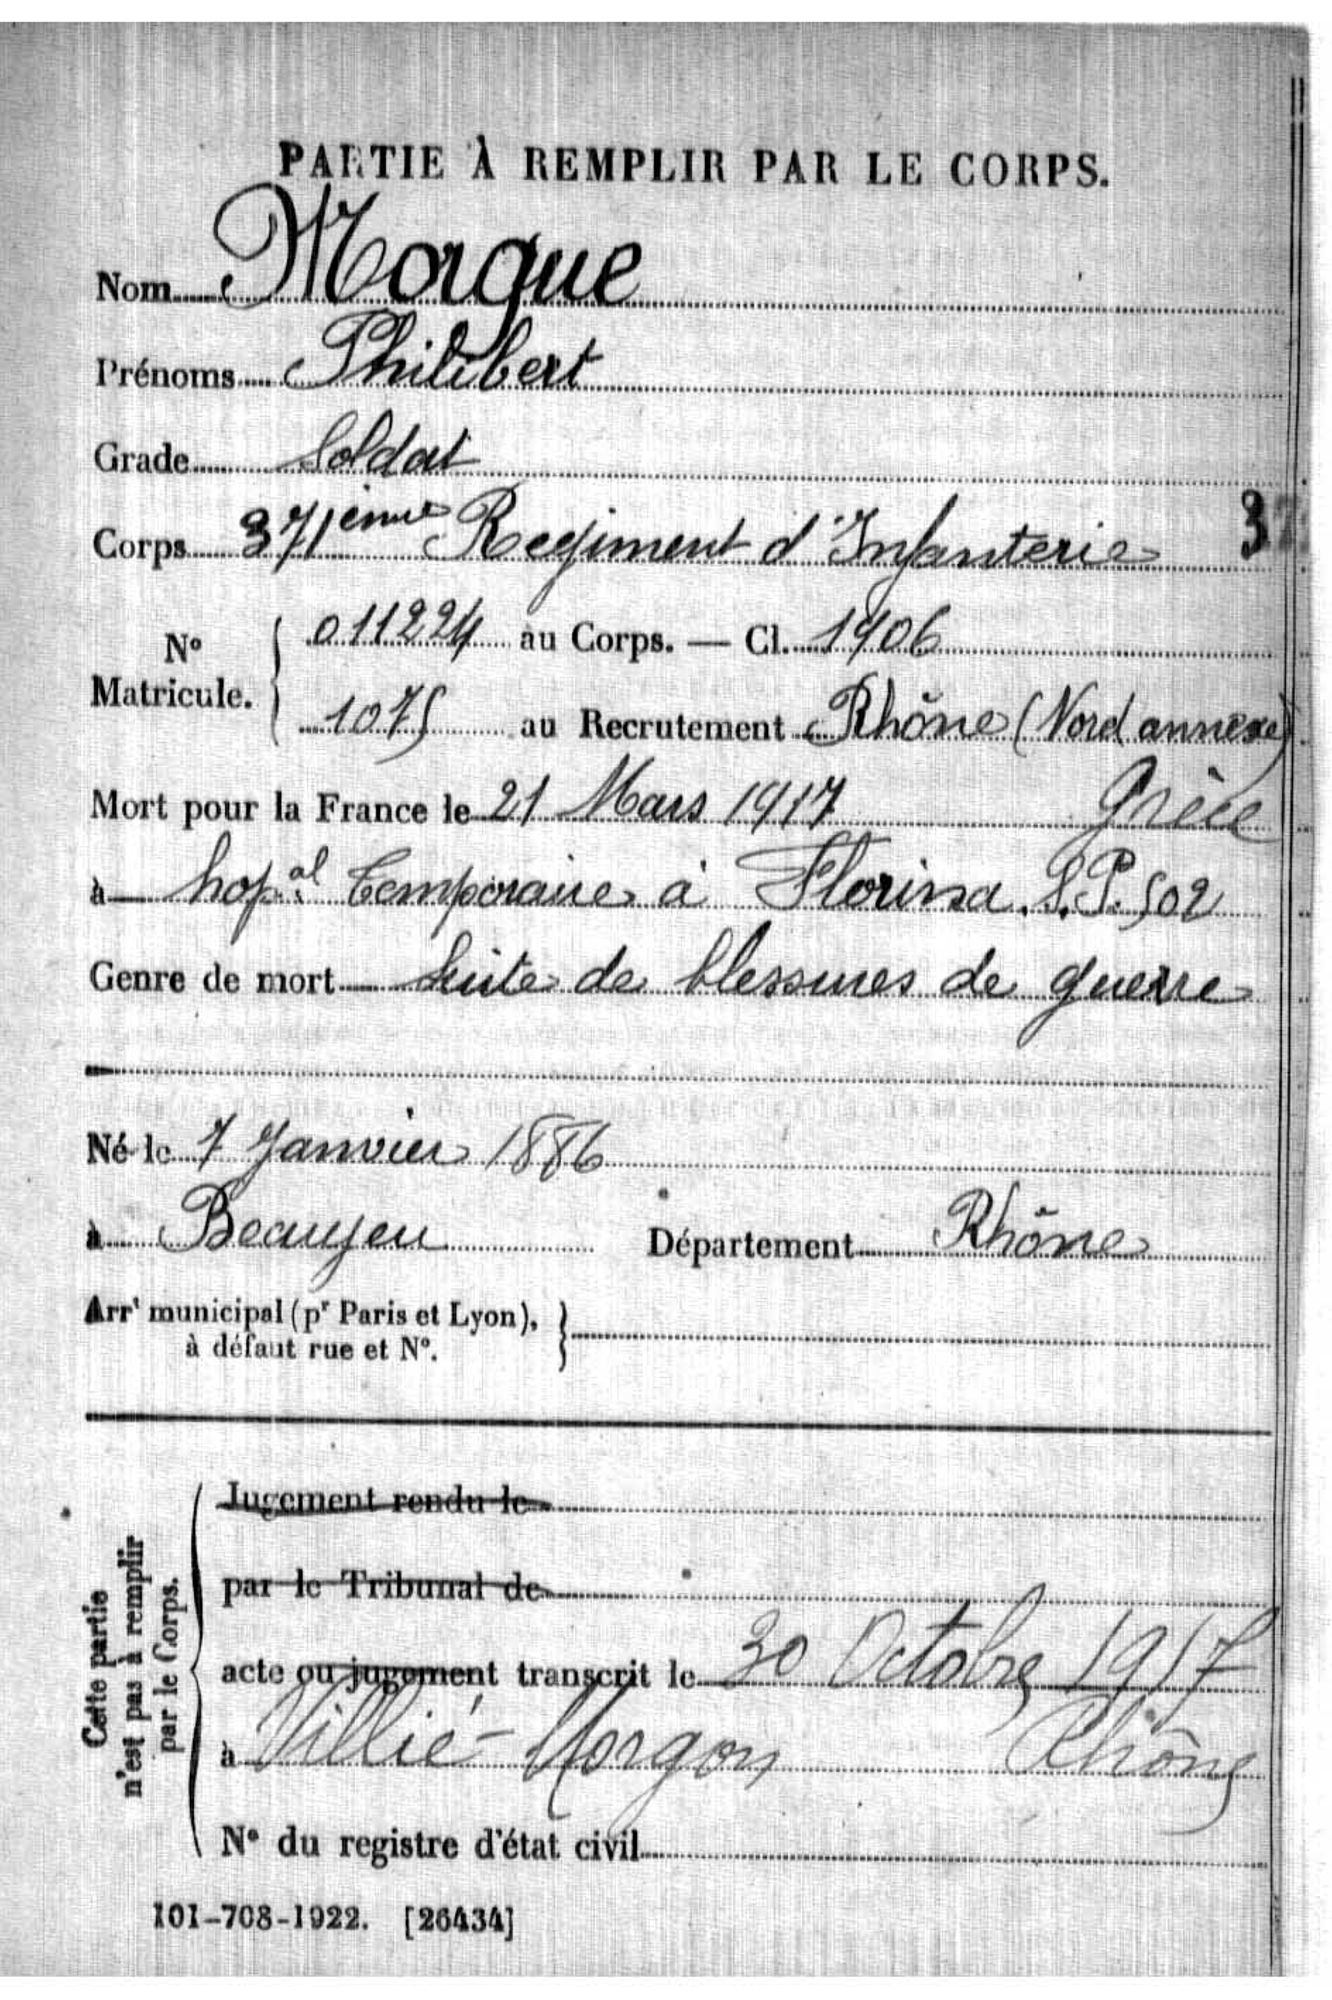 PARTIE À REMPLIR PAR LE CORPS.
Nom Morgue
Prénoms Philibert
Grade Soldat
Corps 371ème Régiment d'Infanterie 37
N° Matricule. 011224 au Corps. — Cl. 1906
1075 au Recrutement Rhône (Nord annexe)
Mort pour la France le 21 Mars 1917 Grèce
à hopal temporaire à Florina. S.P. 502
Genre de mort Suite de blessures de guerre
Né le 7 Janvier 1886
à Beaujeu Département Rhône
Arrt municipal (pr Paris et Lyon),
à défaut rue et N°.
Cette partie
n'est pas à remplir
par le Corps.
Jugement rendu le
par le Tribunal de
acte ou jugement transcrit le 30 Octobre 1917
à Villié-Morgon Rhône
N° du registre d'état civil
101-708-1922. [26434]